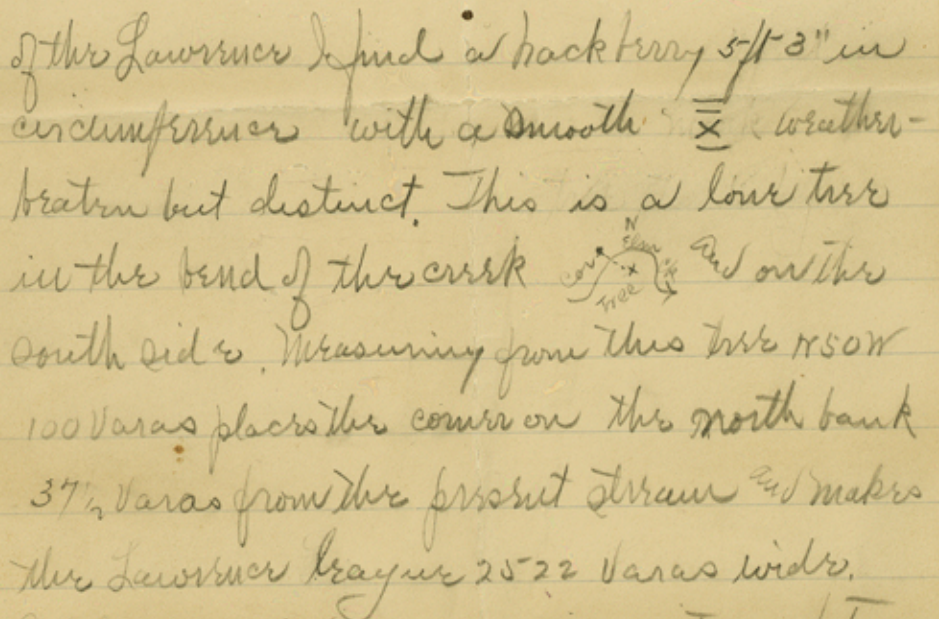 of the Lawrence I find a hackberry 5ft 3" in
circumference with a smooth X weather-
beaten but distinct. This is a lone tree
in the bend of the creek Cor N Elm Tree X and on the
south side. Measuring from this tree N50W
100 Varas places the corner on the north bank
37½ Varas from the present stream and makes
the Lawrence league 2522 Varas wide.